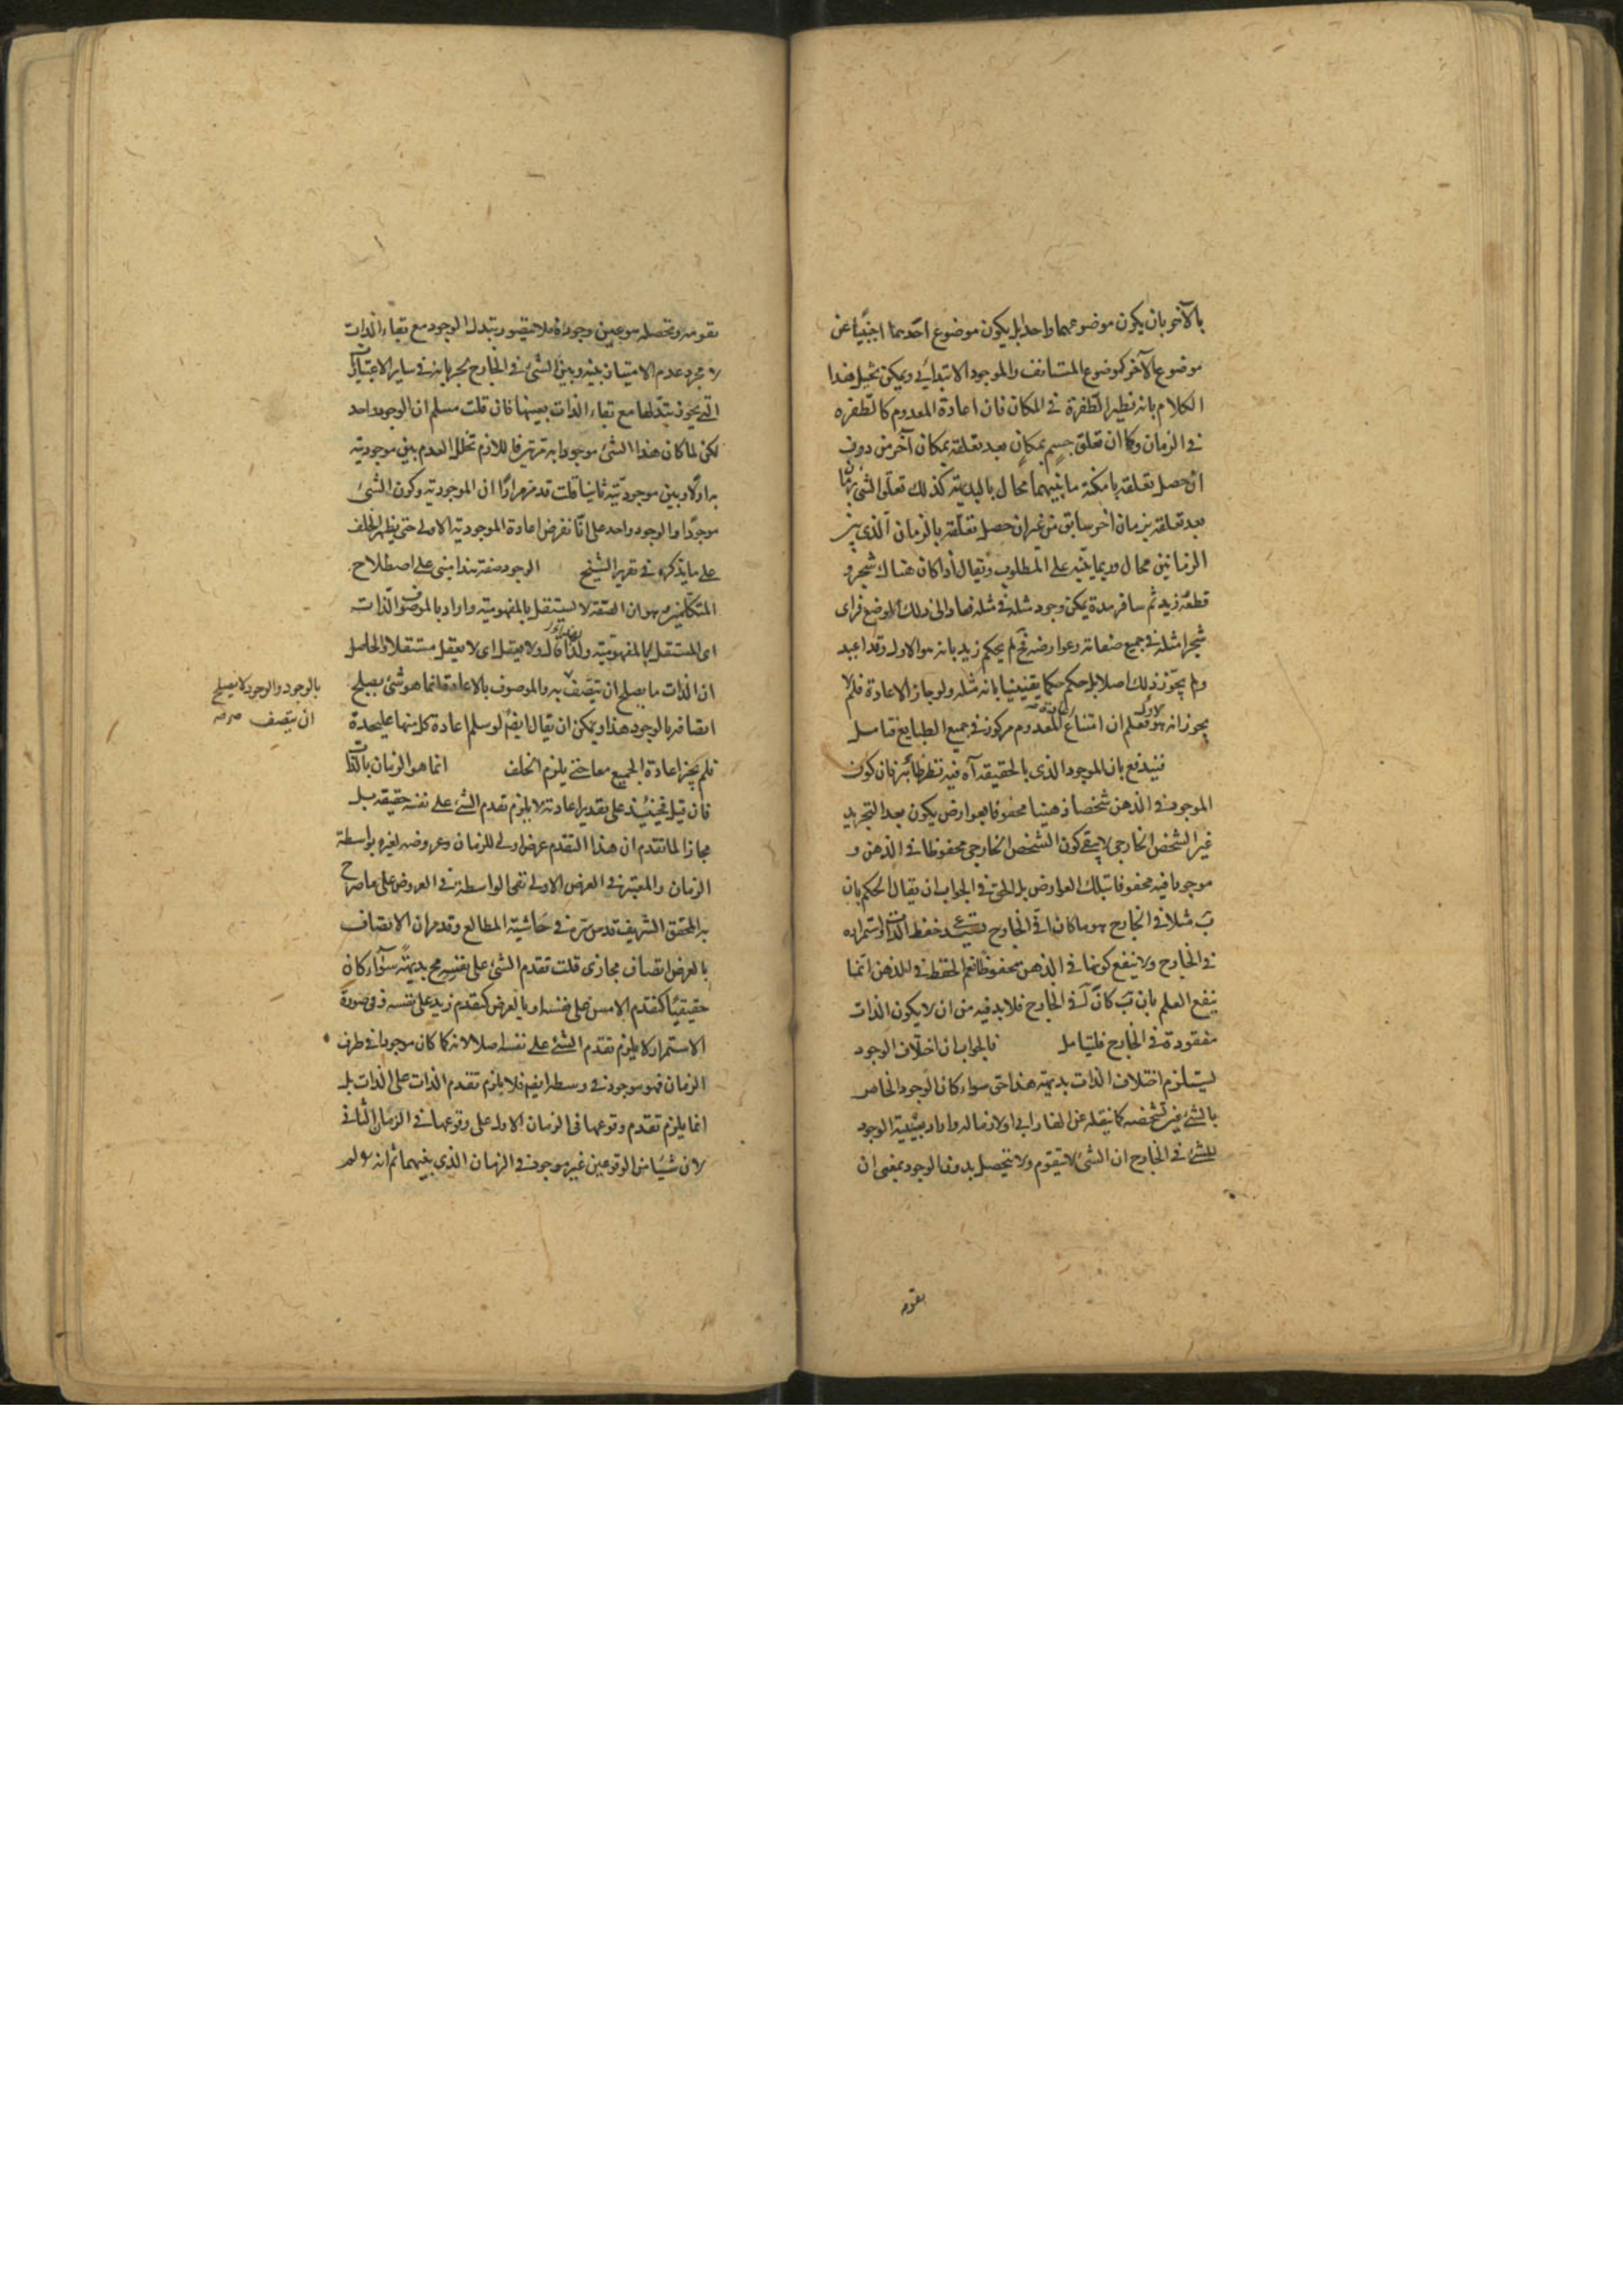 بالآخر بان يكون موضوعهما واحدا بل يكون موضوع احدهما اجنبيا عن
موضوع الآخر كموضوع المستانف والموجود الابتدائي ويمكن تخييل هذا
الكلام بانه نظير الطفرة في المكان فان اعادة المعدوم كالطفره
في الزمان وكما ان تعلق جسم بمكان بعد تعلقه بمكان آخر من دون
ان حصل تعلقه بامكنة ما بينهما محال بالبديهة كذلك تعلق الشئ بزمان
بعد تعلقه بزمان آخر سابق من غير ان حصل تعلقه بالزمان الذي بين
الزمانين محال وربما ينبه على المطلوب ويقال اذا كان هناك شجر و
قطعه زيد ثم سافر مدة يمكن وجود مثله في مثله فعاد الى ذلك الموضع فراى
شجرا مثله في جميع صفاته وعوارضه فح لم يحكم زيد بانه هو الاول وقد اعيد
ولم يجوز ذلك اصلا بل حكم حكما يقينيا بانه مثله ولو جاز الاعادة فلم لا
يجوز انه هو الاول فعلم ان امتناع اعادة المعدوم مركوز في جميع الطبايع فتامل
فيندفع بان الموجود الذي بالحقيقه آه فيه نظر ظاهر فان كون
الموجود في الذهن شخصا ذهنيا محفوفا بعوارض يكون بعد التجريد
غير الشخص الخارجي لا يبقى كون الشخص الخارجي محفوظا في الذهن و
موجودا فيه محفوفا بتلك العوارض بل الحق في الجواب ان يقال الحكم بان
ب مثلا في الخارج هو ما كان ا في الخارج يستدعى حفظ الذات واستمراره
في الخارج ولا ينفع كونها في الذهن محفوظا نعم الحفظ في الذهن انما
ينفع العلم بان ب كان ا في الخارج فلا بد فيه من ان لا يكون الذات
مفقودة في الخارج فليتامل فالجواب ان اختلاف الوجود
يستلزم اختلاف الذات بديهة هذا حق سواء كان الوجود الخاص
بالشئ عين تشخصه كما ينقله عن الفارابي او لازما له واراد بعينية الوجود
للشئ في الخارج ان الشئ لا يتقوم ولا يتحصل بدون الوجود بمعنى ان
تقومه
تقومه وتحصله هو عين وجوده فلا يتصور تبدل الوجود مع بقاء الذات
لا مجرد عدم الامتياز بينه وبين الشئ في الخارج لجريانه في ساير الاعتباريات
التي يجوز تبدلها مع بقاء الذات بعينها فان قلت مسلم ان الوجود واحد
لكن لما كان هذا الشئ موجودا به مرتين فاللازم تخلل العدم بين موجوديته
به اولا وبين موجوديته ثانيا قلت قد مر مرارا ان الموجودية وكون الشئ
موجودا والوجود واحد على انا نفرض اعادة الموجودية الاولى حتى يظهر الخلف
على ما يذكره في تقرير الشيخ الوجود صفة هذا مبني على اصطلاح
المتكلمين وهو ان الصفة لا يستقل بالمفهومية واراد بالموصوف الذات
اى المستقل بالمفهومية ولذا قال ولا يعقل اى لا يعقل مستقلا والحاصل
ان الذات ما يصلح ان يتصف به والموصوف بالاعادة انما هو شئ يصلح
بالوجود والوجود لا يصلح
ان يتصف صح صح
اتصافه بالوجود هذا ويمكن ان يقال ايضا لو سلم اعادة كل منهما عليحدة
فلم يجز اعادة الجميع معا حتى يلزم الخلف انما هو الزمان بالذات
فان قيل فحينئذ على تقدير اعادته لا يلزم تقدم الشئ على نفسه حقيقه بل
مجازا لما تقدم ان هذا التقدم عرض اولى للزمان وعروضه لغيره بواسطة
الزمان والمعتبر في العرض الاولى نفى الواسطة في العروض على ما صرح
به المحقق الشريف قدس سره في حاشية المطالع وقد مر ان الاتصاف
بالعرض اتصاف مجازى قلت تقدم الشئ على نفسه مح بديهة سواء كان
حقيقيا كتقدم الامس على نفسه او بالعرض كتقدم زيد على نفسه وفي صورة
الاستمرار لا يلزم تقدم الشئ على نفسه اصلا لانه كما كان موجودا في طرف
الزمان فهو موجود في وسطه ايضا فلا يلزم تقدم الذات على الذات بل
انما يلزم تقدم وقوعها في الزمان الاول على وقوعها في الزمان الثاني
لان شيئا من الوقوعين غير موجود في الزمان الذي بينهما ثم انه لو لم